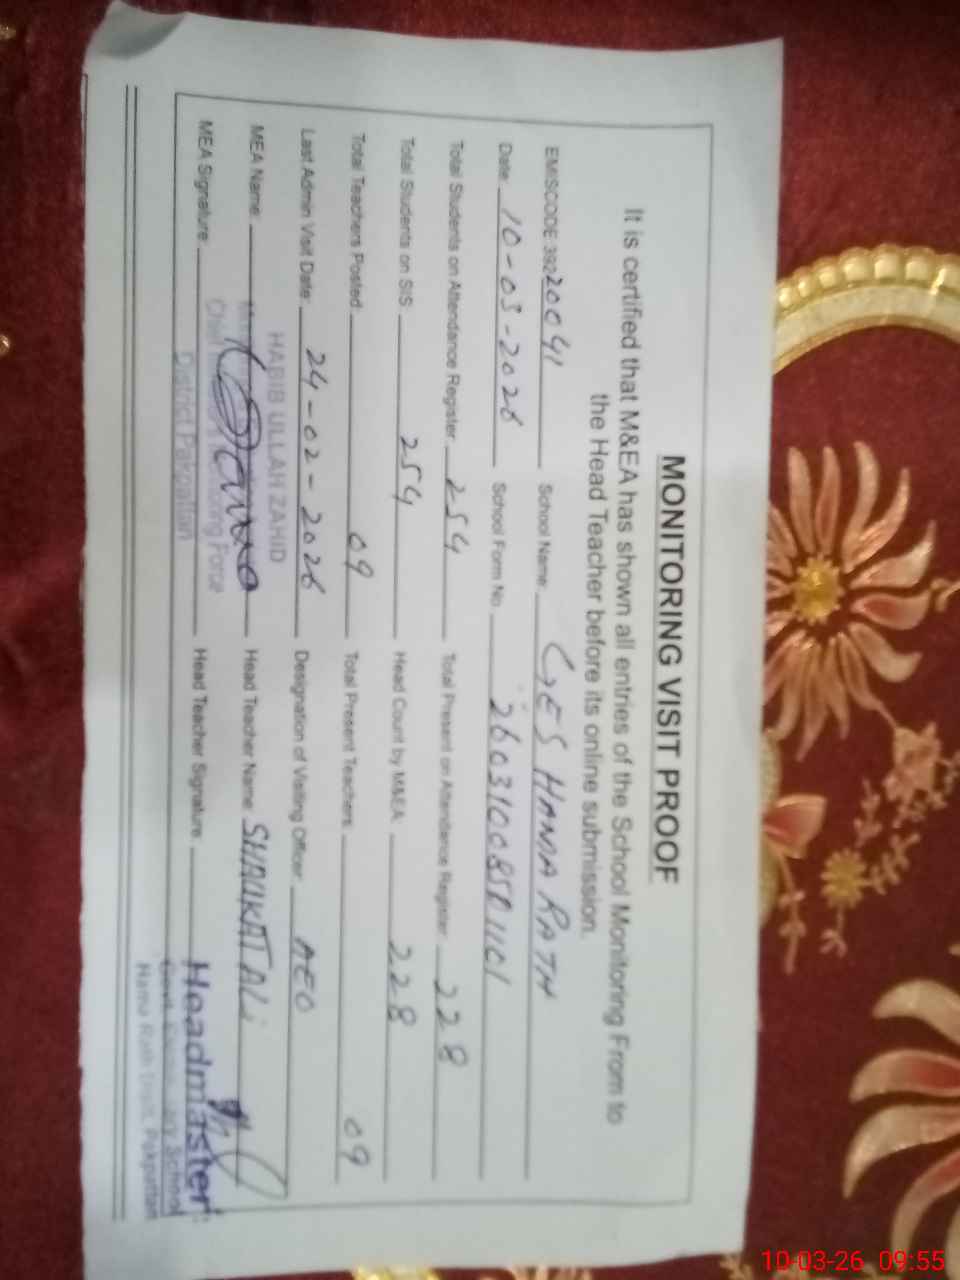 MONITORING VISIT PROOF
It is certified that M&EA has shown all entries of the School Monitoring From to
the Head Teacher before its online submission.
EMISCODE 39220041 School Name GES HAMA RATH
Date 10-03-2026 School Form No.
Total Students on Attendance Register 254 Total Present on Attendance Register 228
Total Students on SIS: 254 Head Count by M&EA: 228
Total Teachers Posted: 09 Total Present Teachers: 09
Last Admin Visit Date: 24-02-2026 Designation of Visiting Officer: AEO
HABIB ULLAH ZAHID
MEA Name: Head Teacher Name SHAUKAT ALi
Monitoring Force
MEA Signature: Head Teacher Signature:
District Pakpattan
Headmaster
Govt. School
Hama Rath Distt. Pakpattan
10-03-26 09:55